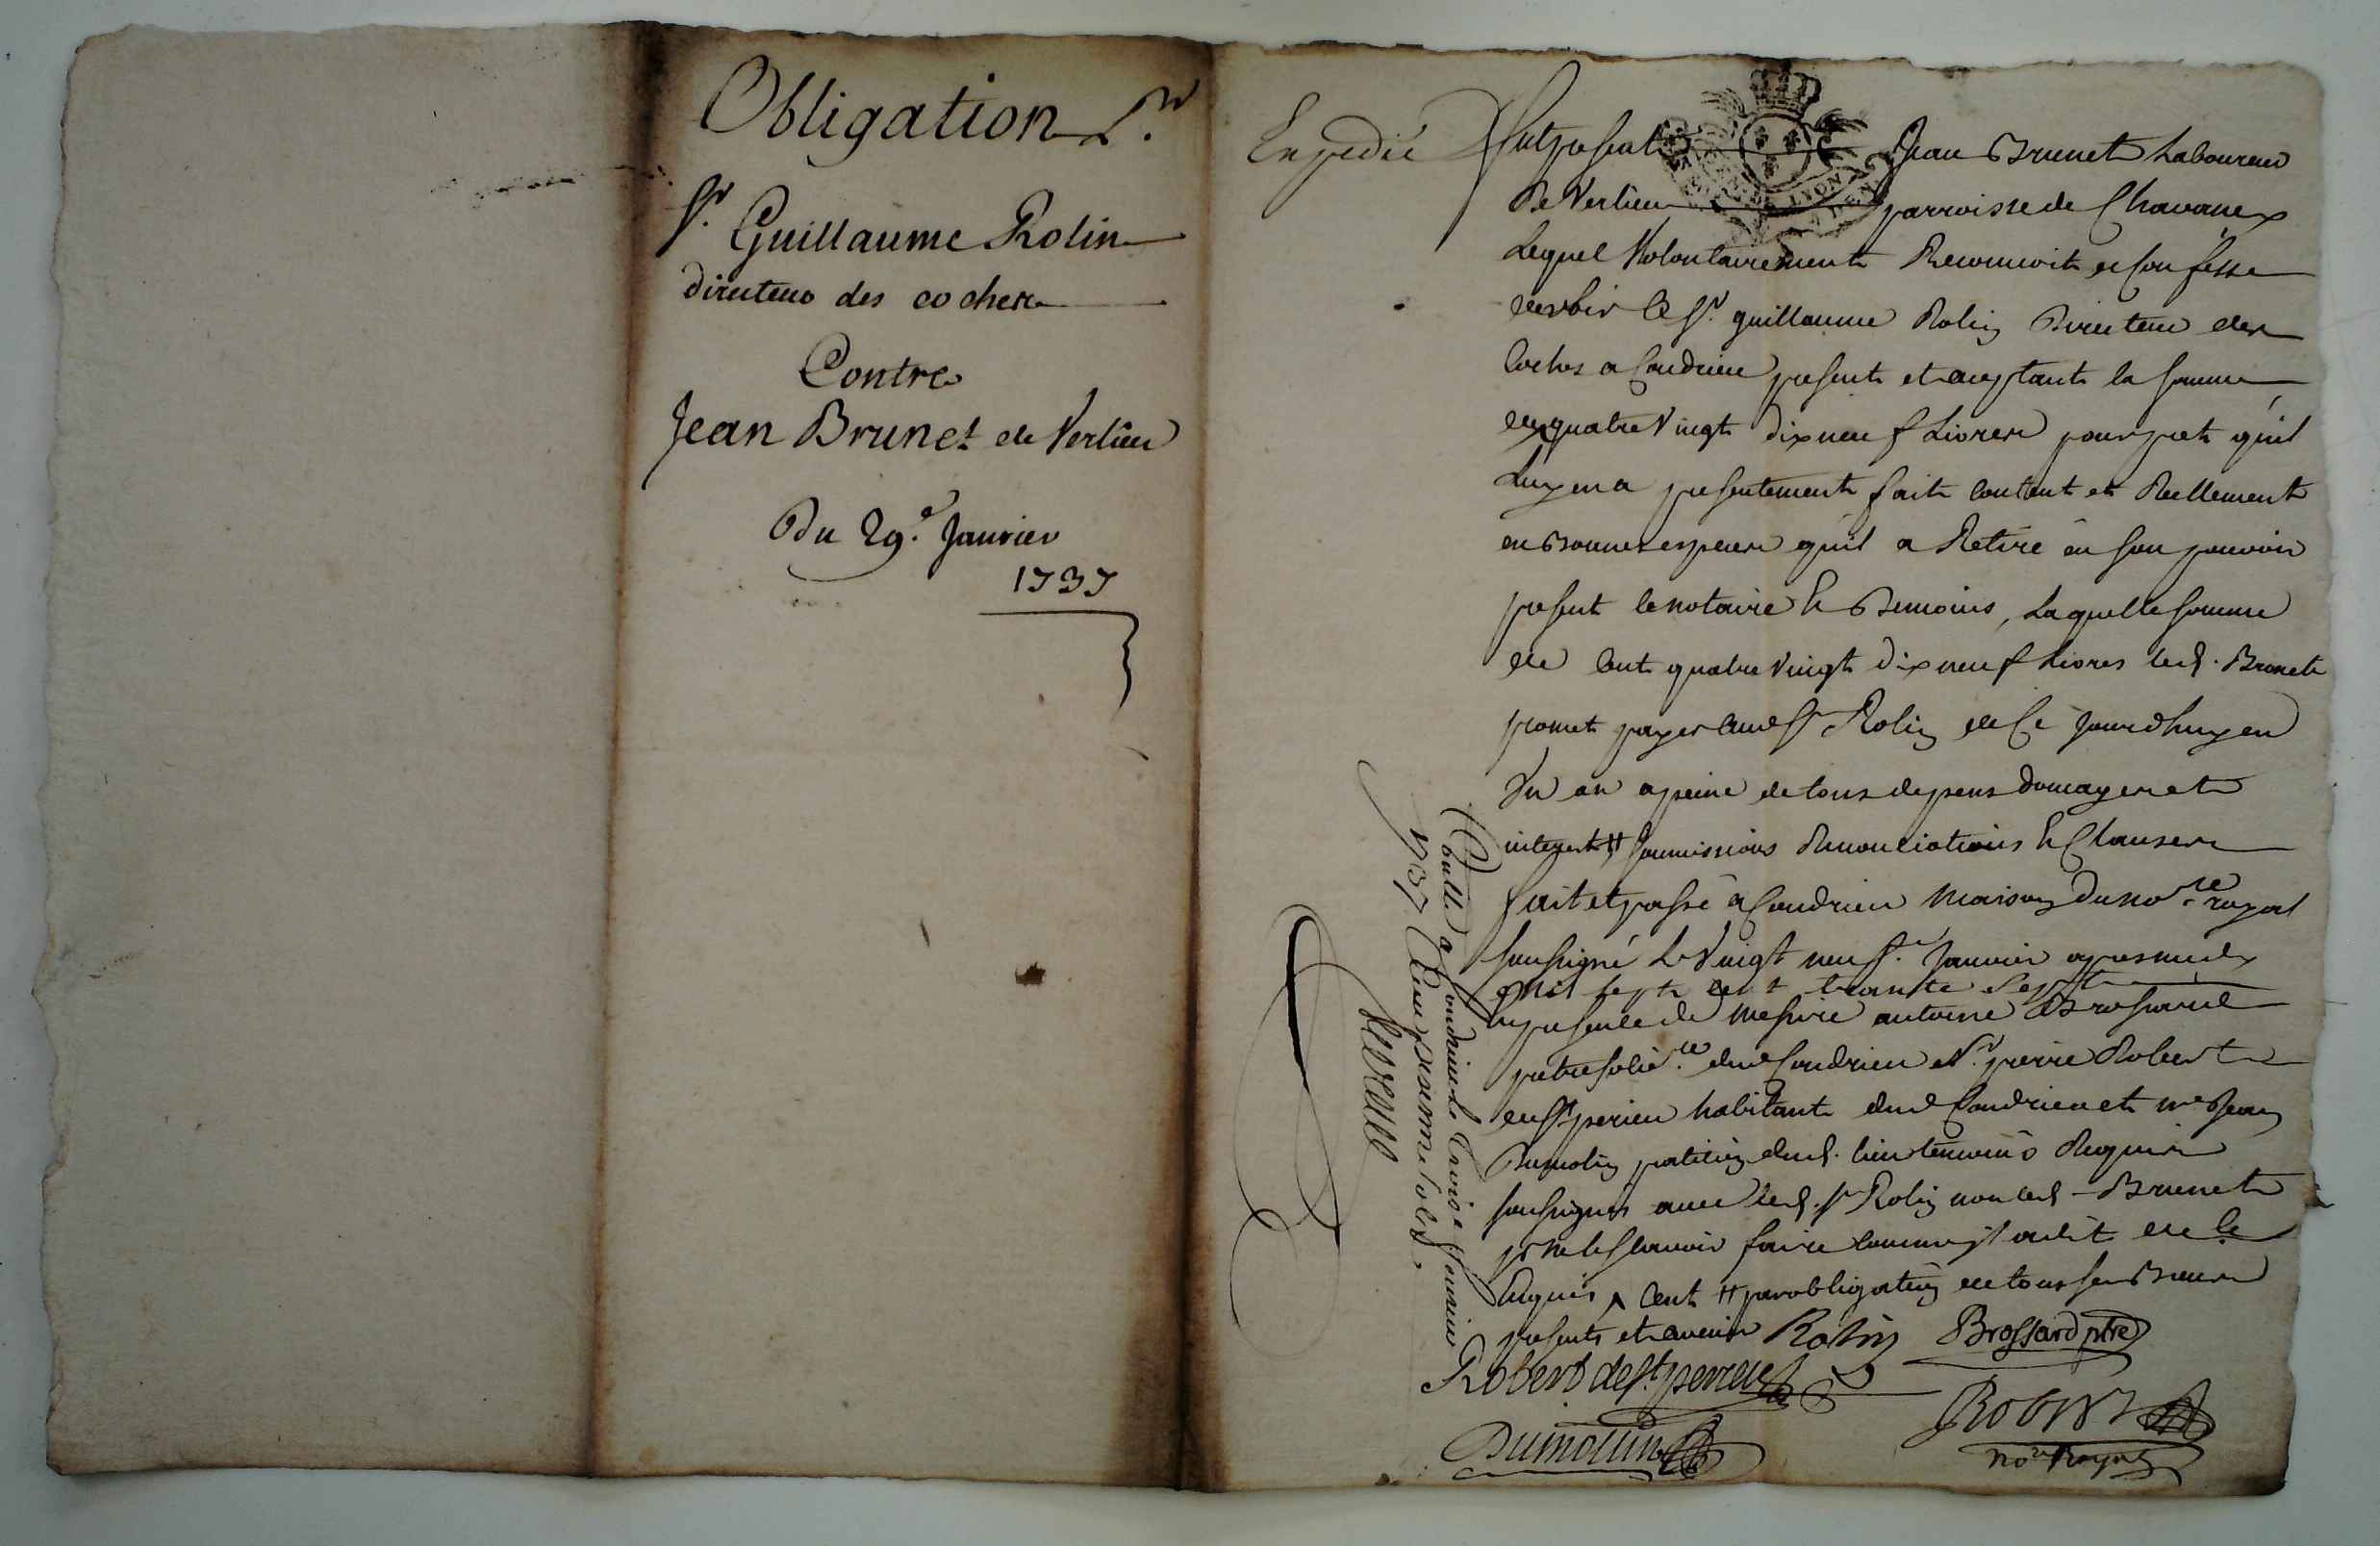 Obligation Pr
Sr. Guillaume Rolin
directeur des coches
Contre
Jean Brunet de Verlieu
Du 29e. Janvier
1737
Expedié
Fut present Jean Brunet Laboureur
De Verlieu parroisse de Chavanex
Lequel Volontairement Reconnoit et Confesse
devoir a Sr. guillaume Rolin Directeur des
Coches a Condrieu present et acceptant la somme
de quatre Vingt dix neuf Livres pour pret quil
Luy en a presentement fait Contant et Reellement
en Bonnes especes quil a Retiré en son pouvoir
present le notaire & temoins, Laquelle somme
de Cent quatre Vingt dix neuf Livres led. Brunet
promet payer aud Sr Rolin de Ce Jourdhuy en
Un an a peine de tous depens domages et
interest # soumissions Renonciations & Clauses
fait et passé a Condrieu Maison du nore royal
soussigné Le Vingt neuf. Janvier apres midy
Mil sept cent trante Sept
En presence de messire antoine Brossard
pretre dud Condrieu et Sr. pierre Robert
de St perieu habitant dud Condrieu et me Jean
Dumolin praticien dud. lieu temoins Requis
soussignés avec led. Sr Rolin non led Brunet
pr ne le sçavoir faire comme il a dit de Ce
Requis ^ Cent # par obligation de tous ses Biens
presents et avenir Rolin Brossard ptre
Robert de St perrieu
Robert
Dumolin
nore Royal
Controllé a Condrieu Le Trois e fevrier
1737